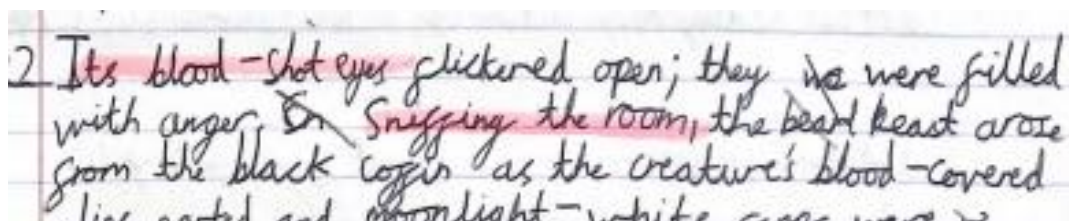 2 Its blood-shot eyes flickered open; they were filled
with anger. Sniffing the room, the beast arose
from the black coffin as the creature's blood-covered
lips parted and moonlight-white